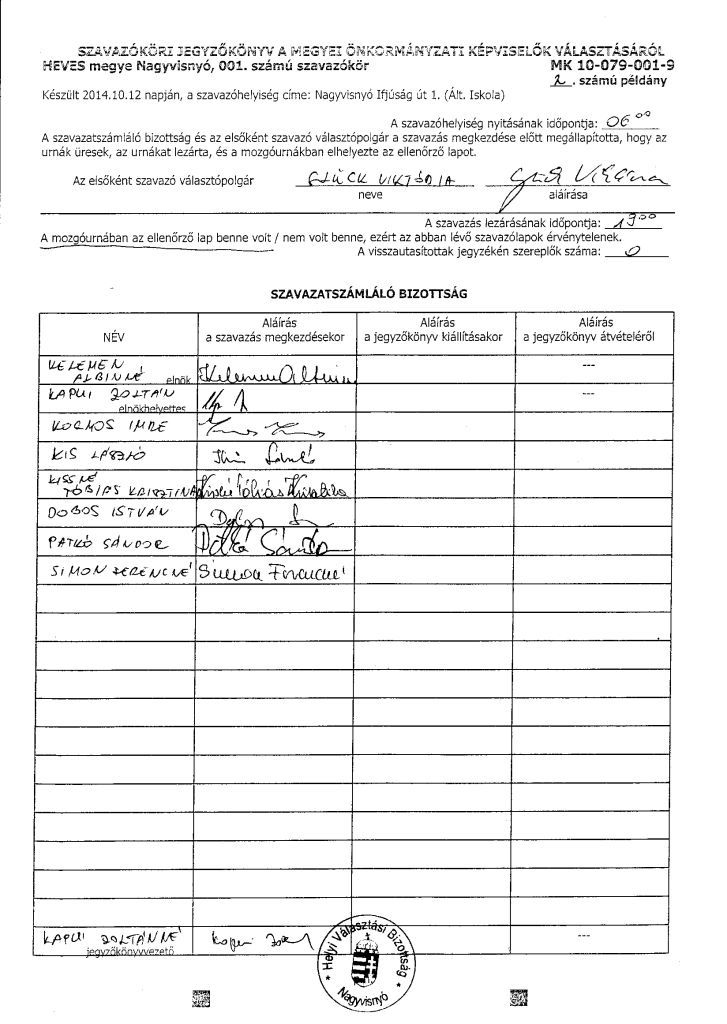 SZAVAZÓKÖRI JEGYZŐKÖNYV A MEGYEI ÖNKORMÁNYZATI KÉPVISELŐK VÁLASZTÁSÁRÓL
HEVES megye Nagyvisnyó, 001. számú szavazókör MK 10-079-001-9
2. számú példány
Készült 2014.10.12 napján, a szavazóhelyiség címe: Nagyvisnyó Ifjúság út 1. (Ált. Iskola)
A szavazóhelyiség nyitásának időpontja: 06 00
A szavazatszámláló bizottság és az elsőként szavazó választópolgár a szavazás megkezdése előtt megállapította, hogy az
urnák üresek, az urnákat lezárta, és a mozgóurnákban elhelyezte az ellenőrző lapot.
Az elsőként szavazó választópolgár
neve aláírása
A szavazás lezárásának időpontja: 19 00
A mozgóurnában az ellenőrző lap benne volt / nem volt benne, ezért az abban lévő szavazólapok érvénytelenek.
A visszautasítottak jegyzékén szereplők száma: 0
SZAVAZATSZÁMLÁLÓ BIZOTTSÁG
NÉV
Aláírás
a szavazás megkezdésekor
Aláírás
a jegyzőkönyv kiállításakor
Aláírás
a jegyzőkönyv átvételéről
KELEMEN
ALBINNÉ elnök Kelemen Albinné ---
KAPUI ZOLTÁN ---
elnökhelyettes
KORMOS IMRE
KIS LÁSZLÓ Kis László
KISSNÉ
TÓBIÁS KRISZTINA Kissné Tóbiás Krisztina
DOBOS ISTVÁN
PATKÓ SÁNDOR Patkó Sándor
SIMON FERENCNÉ Simon Ferencné
KAPUI ZOLTÁNNÉ ---
jegyzőkönyvvezető
* Helyi Választási Bizottság *
Nagyvisnyó